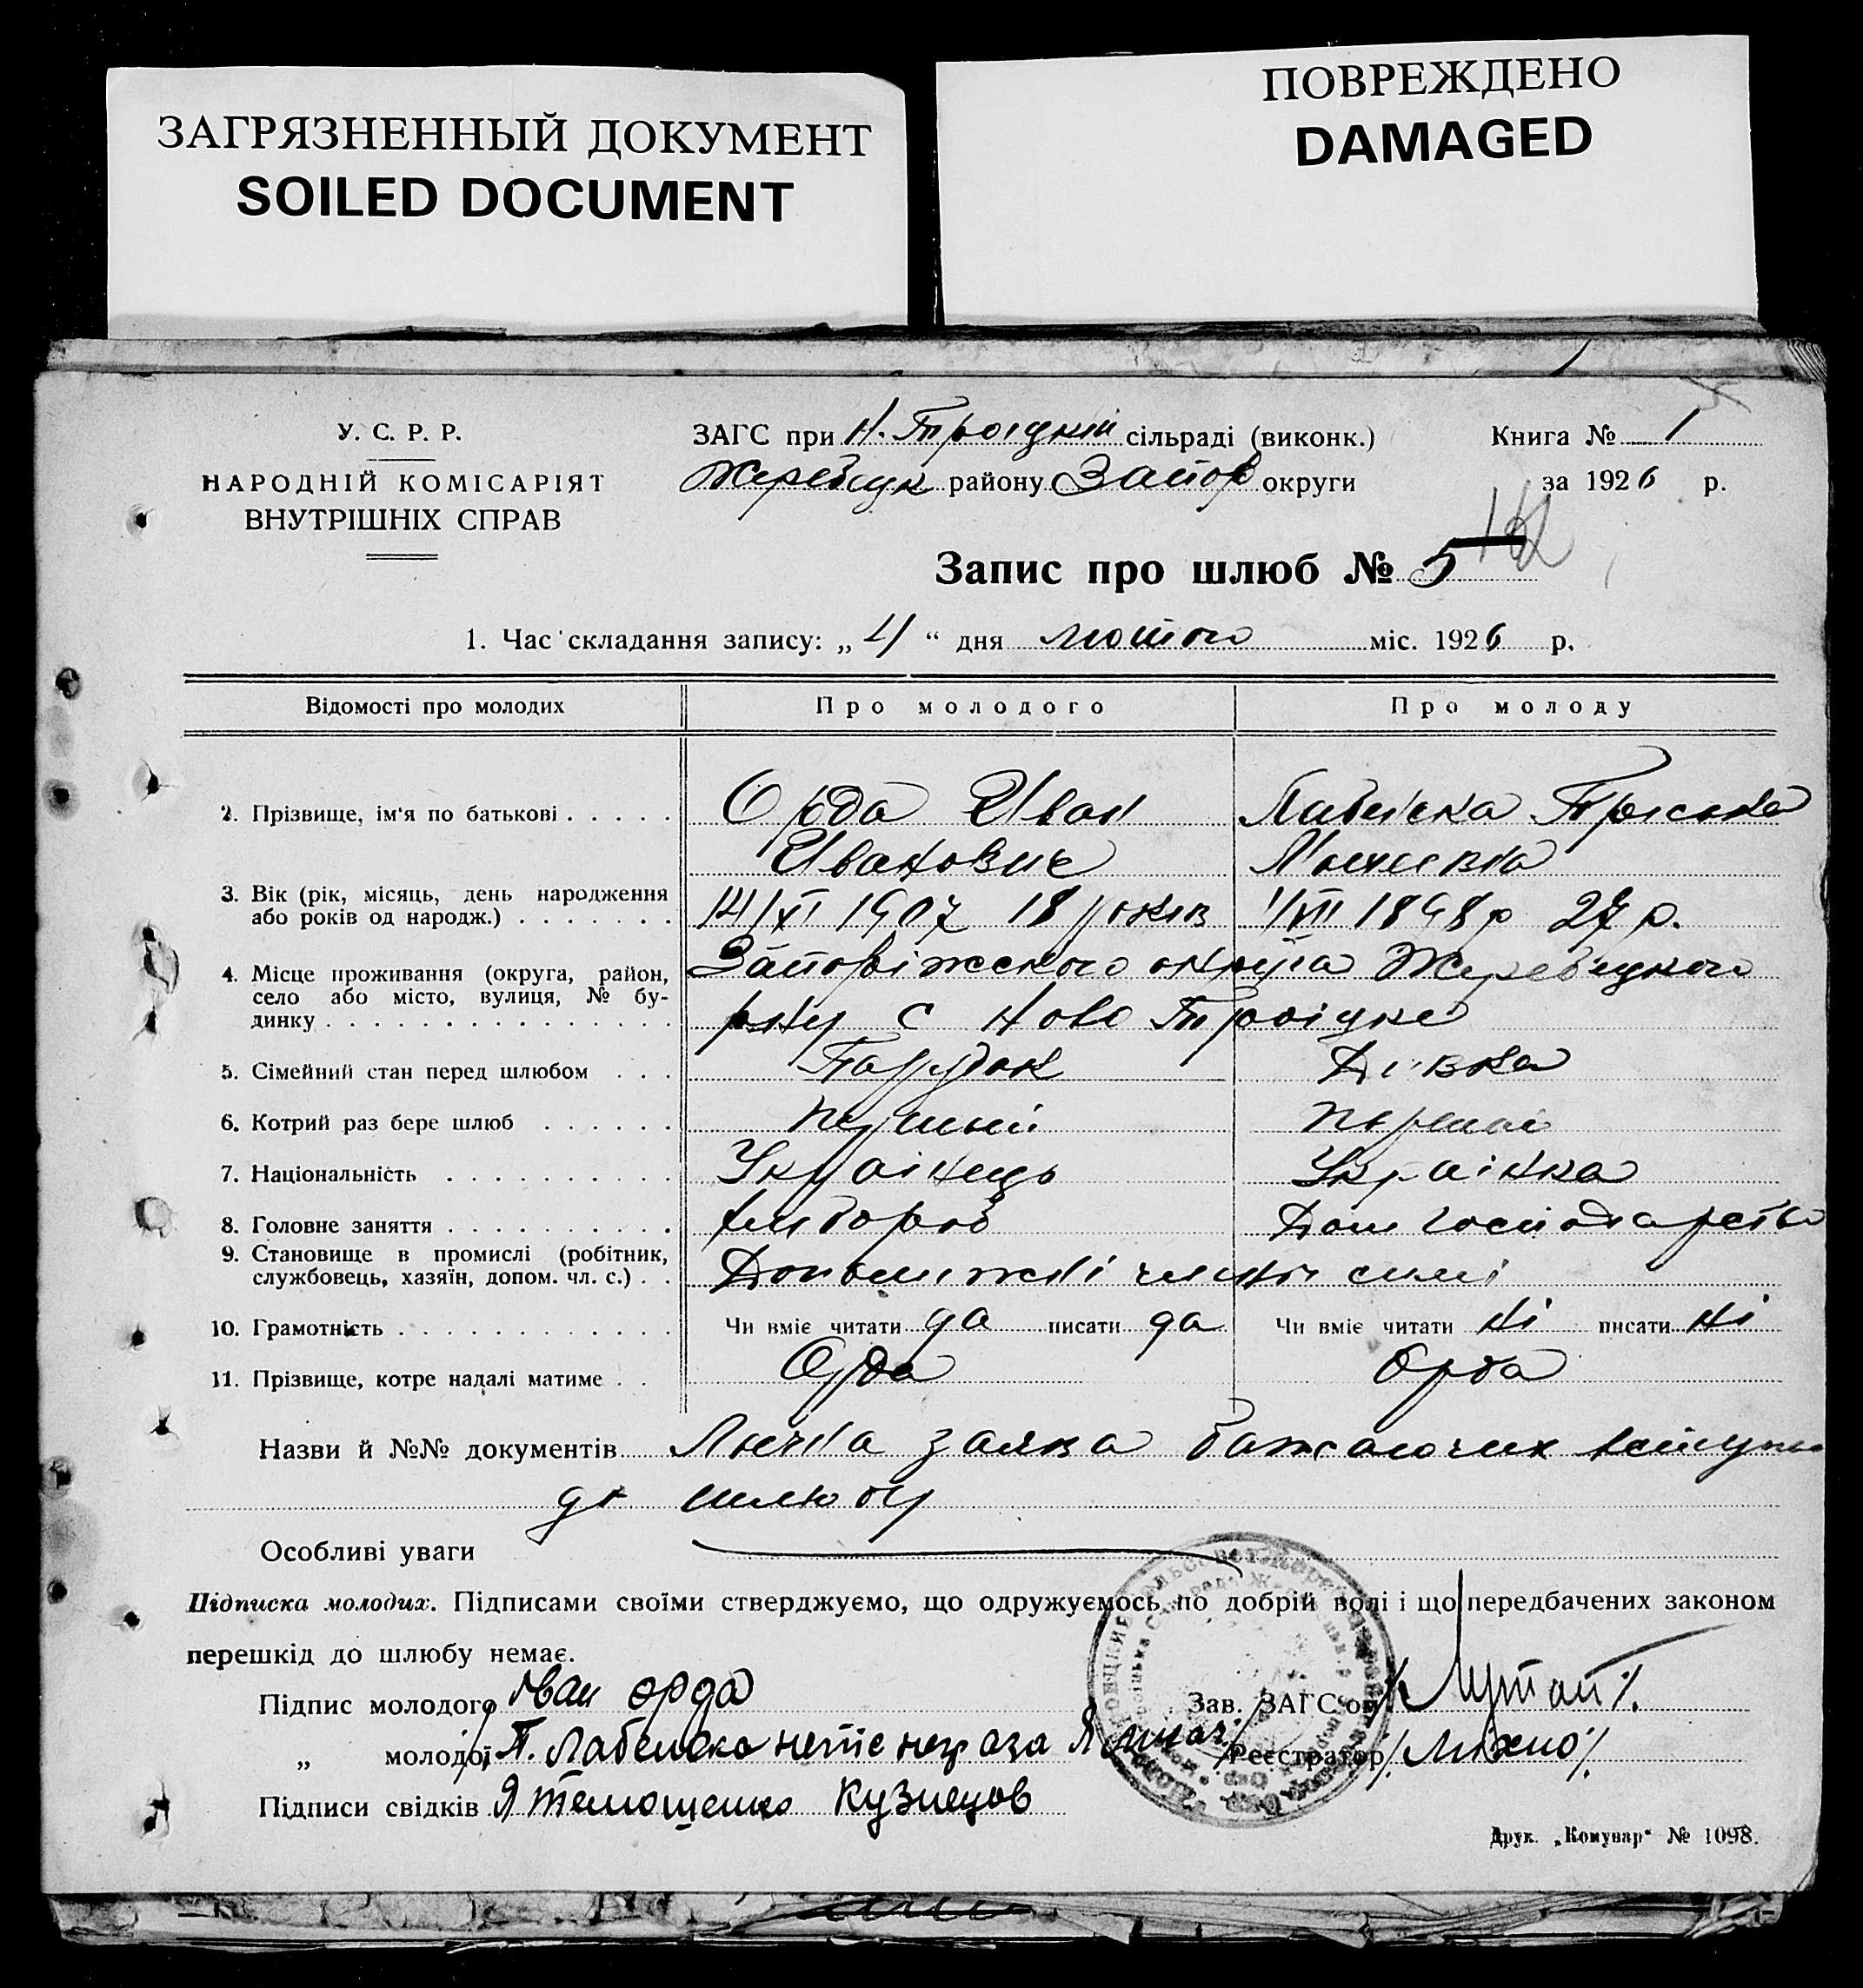 ЗАГРЯЗНЕННЫЙ ДОКУМЕНТ
SOILED DOCUMENT
ПОВРЕЖДЕНО
DAMAGED
У. С. Р. Р.
НАРОДНІЙ КОМІСАРІЯТ
ВНУТРІШНІХ СПРАВ
ЗАГС при Н. Троіцкій сільраді (виконк.)
Жеребецук району Запор округи
Книга № 1
за 1926 р.
Запис про шлюб № 5
1. Час складання запису: „4“ дня лютого міс. 1926 р.
Відомості про молодих Про молодого Про молоду
2. Прізвище, ім'я по батькові Орда Иван
Иванович
3. Вік (рік, місяць, день народження
або років од народж.) 14/XI 1907 18 років 1/VII 1898 р 27 р.
4. Місце проживання (округа, район,
село або місто, вулиця, № бу-
динку
Запоріжского округа Жеребецкого
р-ну с Ново Троіцке
5. Сімейний стан перед шлюбом Парубок Дівка
6. Котрий раз бере шлюб перший
7. Національність Українець Українка
8. Головне заняття хлібороб Дом господарство
9. Становище в промислі (робітник,
службовець, хазяїн, допом. чл. с.)
Допоміжні члени сімі
10. Грамотність Чи вміє читати да писати да Чи вміє читати Ні писати Ні
11. Прізвище, котре надалі матиме Орда Орда
Назви й №№ документів заява бажаючих вступити
до шлюбу
Особливі уваги
Підписка молодих. Підписами своїми стверджуємо, що одружуємось по добрій волі і що передбачених законом
перешкід до шлюбу немає.
Підпис молодого Іван орда
Зав. ЗАГС'ом
„ молодої П. Лабенска
Реєстратор Міхно
Підписи свідків Я Темощенко Кузнецов
Друк. „Комунар“ № 1098.